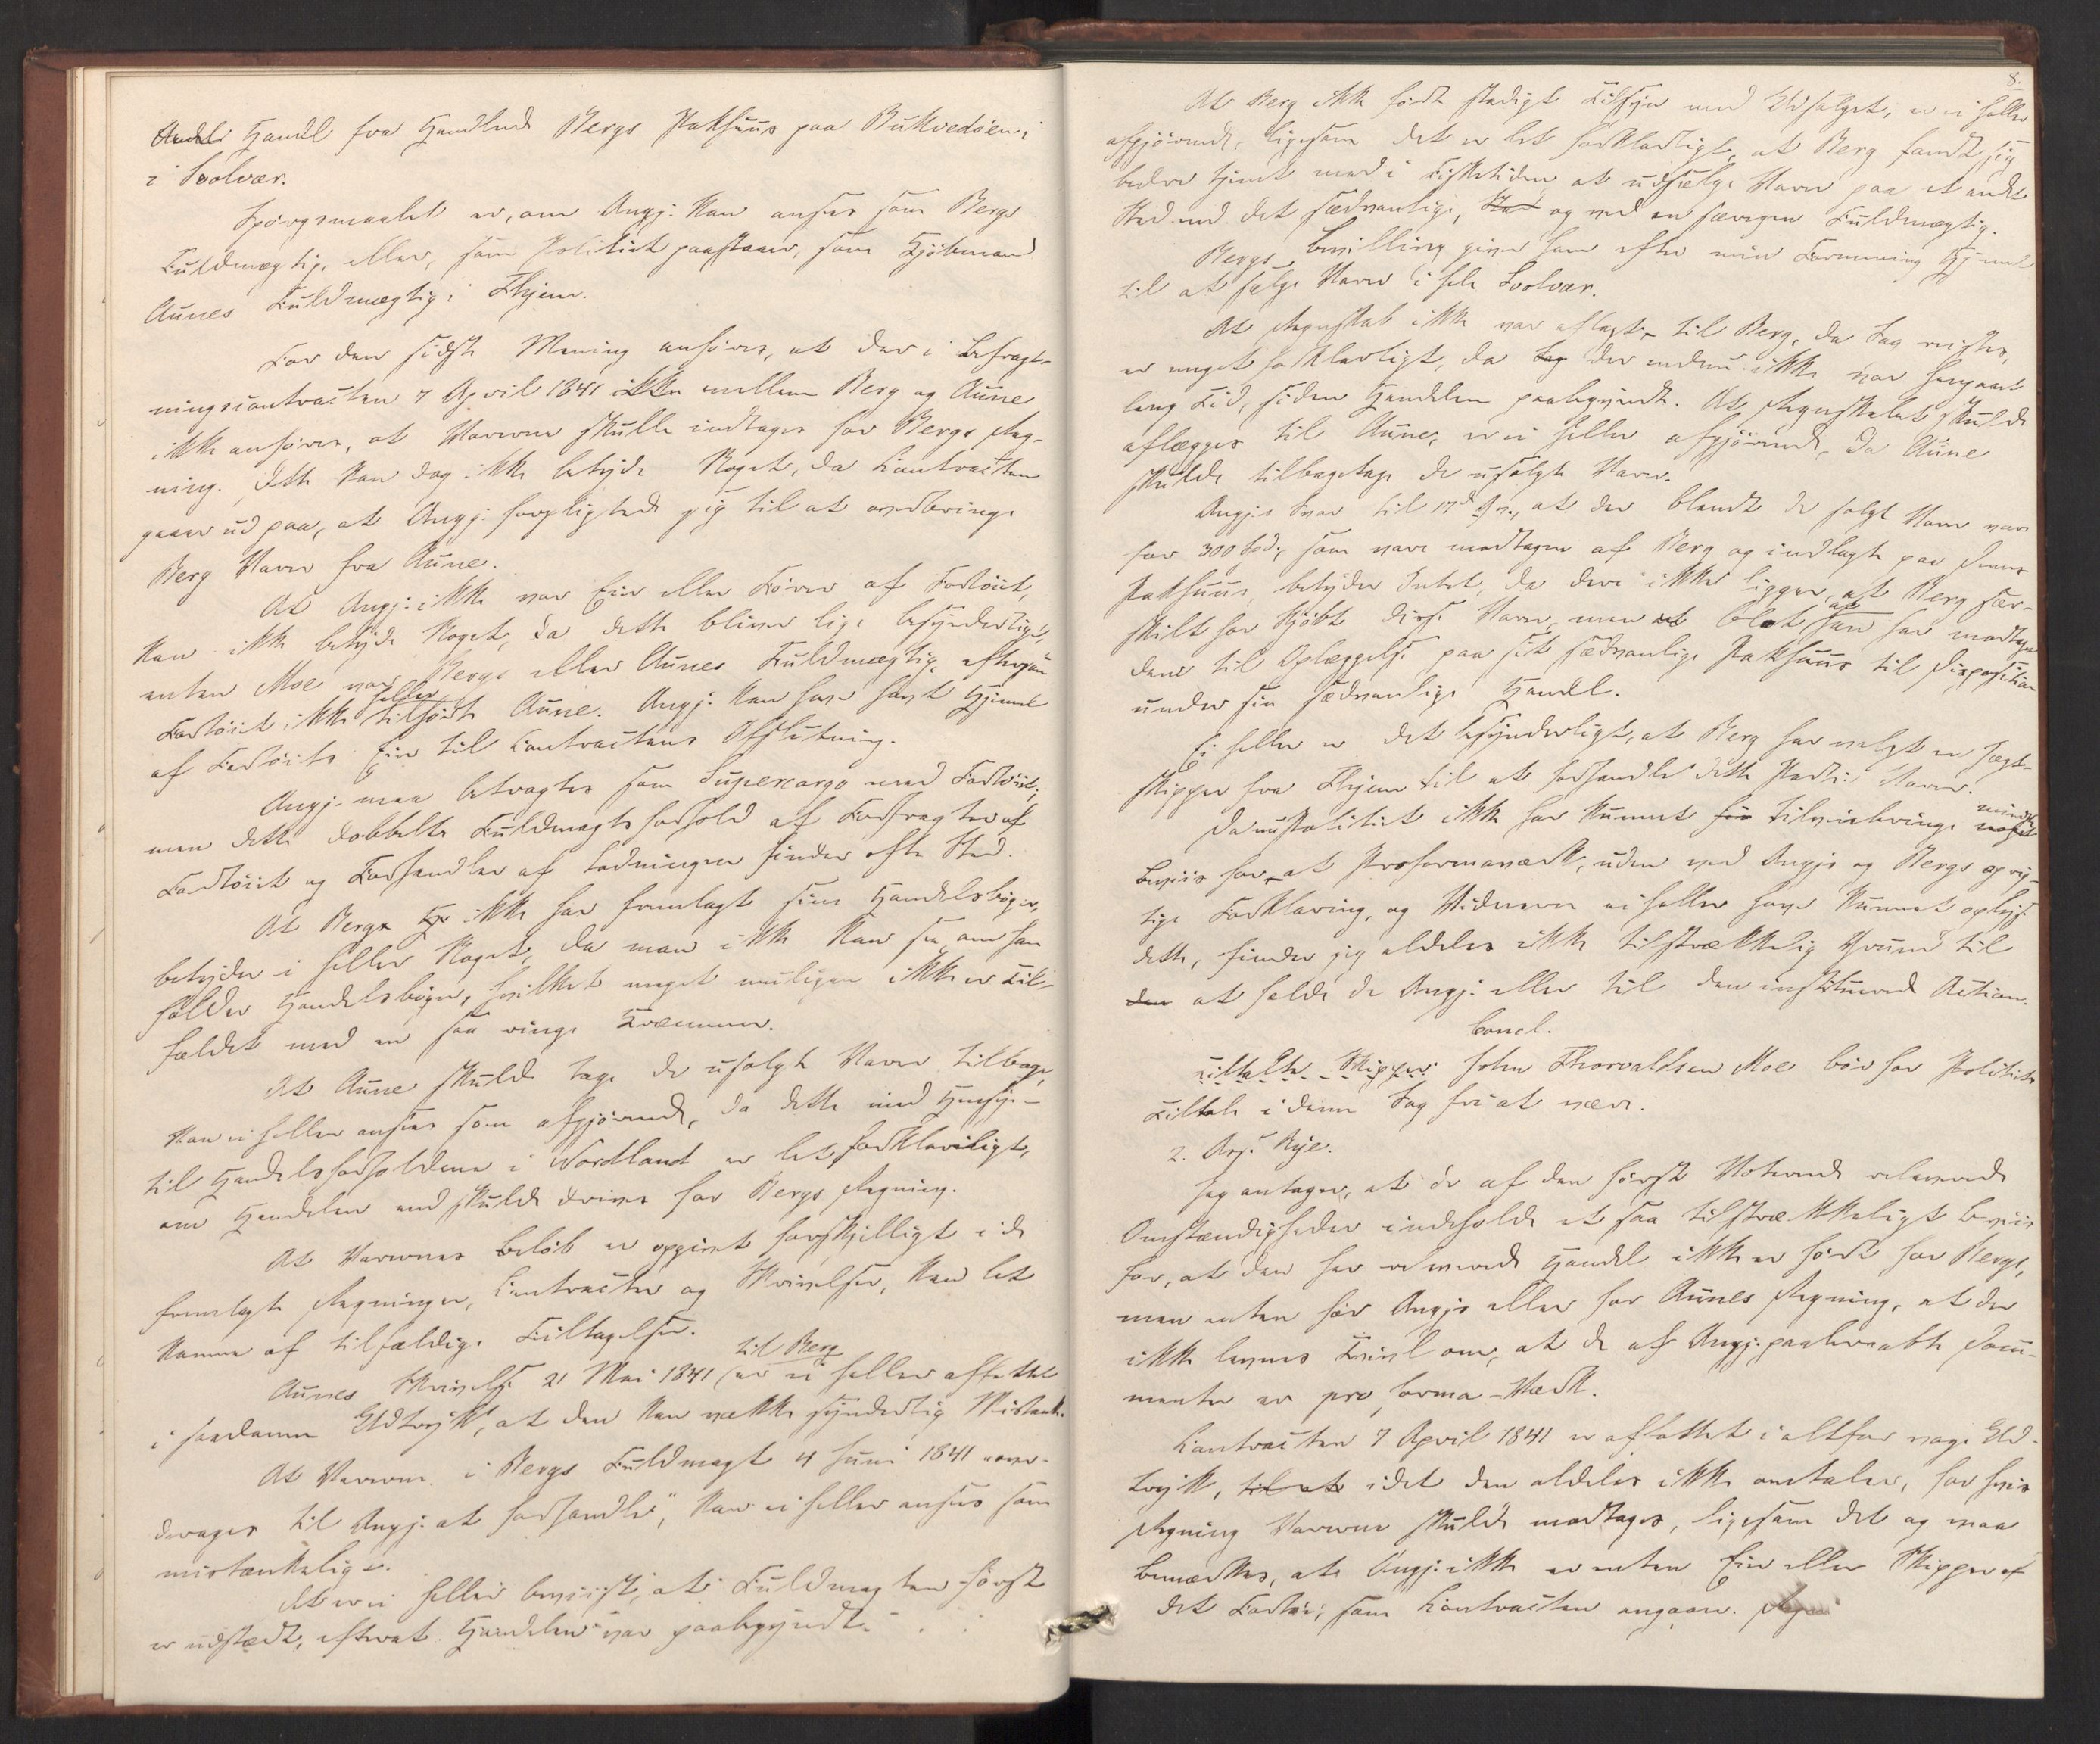 Handel fra Handlende Bergs Pakhuus paa Bukvedöen i
i Svolvær.
Spörgsmaalet er, om Angj. kan ansees som Bergs
Fuldmægtig, eller, som Politiet paastaaer, som Kjöbmand
Aunes Fuldmægtig i Thjem.
For den sidste Mening anföres, at der i Befragt-
ningscontracten 7 April 1841 mellem Berg og Aune
ikke anföres, at Varerne skulle indtages for Bergs Reg-
ning. Dette kan dog ikke betyde Noget, da Contracten
gaaer ud paa, at Angj. forpligtede sig til at medbringe
Berg Varer fra Aune.
At Angj. ikke var Eier eller Förer af Fartöiet,
kan ikke betyde Noget, da dette bliver lige besynderligt,
enten Moe var Bergs eller Aunes Fuldmægtig, eftersom
Fartöiet ikke heller tilhörte Aune. Angj. kan have havt Hjemmel
af Fartöiets Eier til Contractens Afslutning.
Angj. maa betragtes som Supercargo med Fartöiet;
men dette dobbelte Fuldmagtsforhold af Forfragter af
Fartöiet og Forhandler af Ladningen finder ofte Sted.
At Berg ikke har fremlagt sine Handelsböger,
betyder ei heller Noget, da man ikke kan see, om han
holder Handelsböger, hvilket meget muligen ikke er Til-
fældet med en saa ringe Kræmmer.
At Aune skulde tage de usolgte Varer tilbage,
kan ei heller ansees som afgjörende, da dette med Hensyn
til Handelsforholdene i Nordland er let forklarligt,
om Handelen end skulde drives for Bergs Regning.
At Varernes Belöb er opgivet forskjelligt i de
fremlagte Regninger, Contracter og Skrivelser, kan let
komme af tilfældige Feiltagelser.
Aunes Skrivelse 21 Mai 1841 til Berg er ei heller affattet
i saadanne Udtryk, at den kan vække synderlig Mistanke.
At Varerne i Bergs Fuldmagt 4 Juni 1841 "over-
drages til Angj. at forhandle", kan ei heller ansees som
mistænkeligt.
Det er ei heller beviist, at Fuldmagten först
er udstedt, efterat Handelen var paabegyndt.
8.
At Berg ikke förte stadigt Tilsyn med Udsalget, er ei heller
afgjörende, ligesom det er let forklarligt, at Berg fandt sig
bedre tjent med i Fisketiden at udsælge Varer paa et andet
Sted end det sædvanlige, og ved en særegen Fuldmægtig.
Bergs Bevilling giver ham efter min Formening Hjemmel
til at sælge Varer i hele Svolvær.
At Regnskab ikke var aflagt til Berg, da Sag reistes,
er meget forklarligt, da der endnu ikke var hengaaet
lang Tid, siden Handelen paabegyndte. At Regnskabet skulde
aflægges til Aune, er ei heller afgjörende, da Aune
skulde tilbagetage de usolgte Varer.
Angjs Svar til 17de Spm., at der blandt de solgte Varer vare
for 300 Spd., som vare modtagne af Berg og indlagte paa dennes
Pakhuus, betyder Intet, da deri ikke ligger, at Berg sær-
skilt har kjöbt disse Varer, men blot at han har modtaget
dem til Oplæggelse paa sit sædvanlige Pakhuus til Disposition
under sin sædvanlige Handel.
Ei heller er det besynderligt, at Berg har valgt en Jægt-
skipper fra Thjem til at forhandle dette Parti Varer.
Da nu Politiet ikke har kunnet tilveiebringe mindste
Beviis for, at Proformaværk, uden ved Angjs og Bergs oprig-
tige Forklaring, og Vidnerne ei heller have kunnet oplyse
dette, finder jeg aldeles ikke tilstrækkelig Grund til
at fælde de Angj. eller til den instituerede Action.
Concl.
Tiltalte Skipper John Thorvaldsen Moe bör for Politiets
Tiltale i denne Sag fri at være.
2. Ass. Rye.
Jeg antager, at de af den förste Voterende relaterede
Omstændigheder indeholde et saa tilstrækkeligt Beviis
for, at den her omhandlede Handel ikke er fört for Bergs,
men enten for Angjs eller for Aunes Regning, at der
ikke levnes Tvivl om, at de af Angj. paaberaabte Docu-
menter er pro forma-Værk.
Contracten 7 April 1841 er affattet i altfor vage Ud-
tryk, idet den aldeles ikke omtaler, for hvis
Regning Varerne skulde modtages, ligesom det og maa
bemærkes, at Angj. ikke er enten Eier eller Skipper af
det Fartöi, som Contracten angaaer.